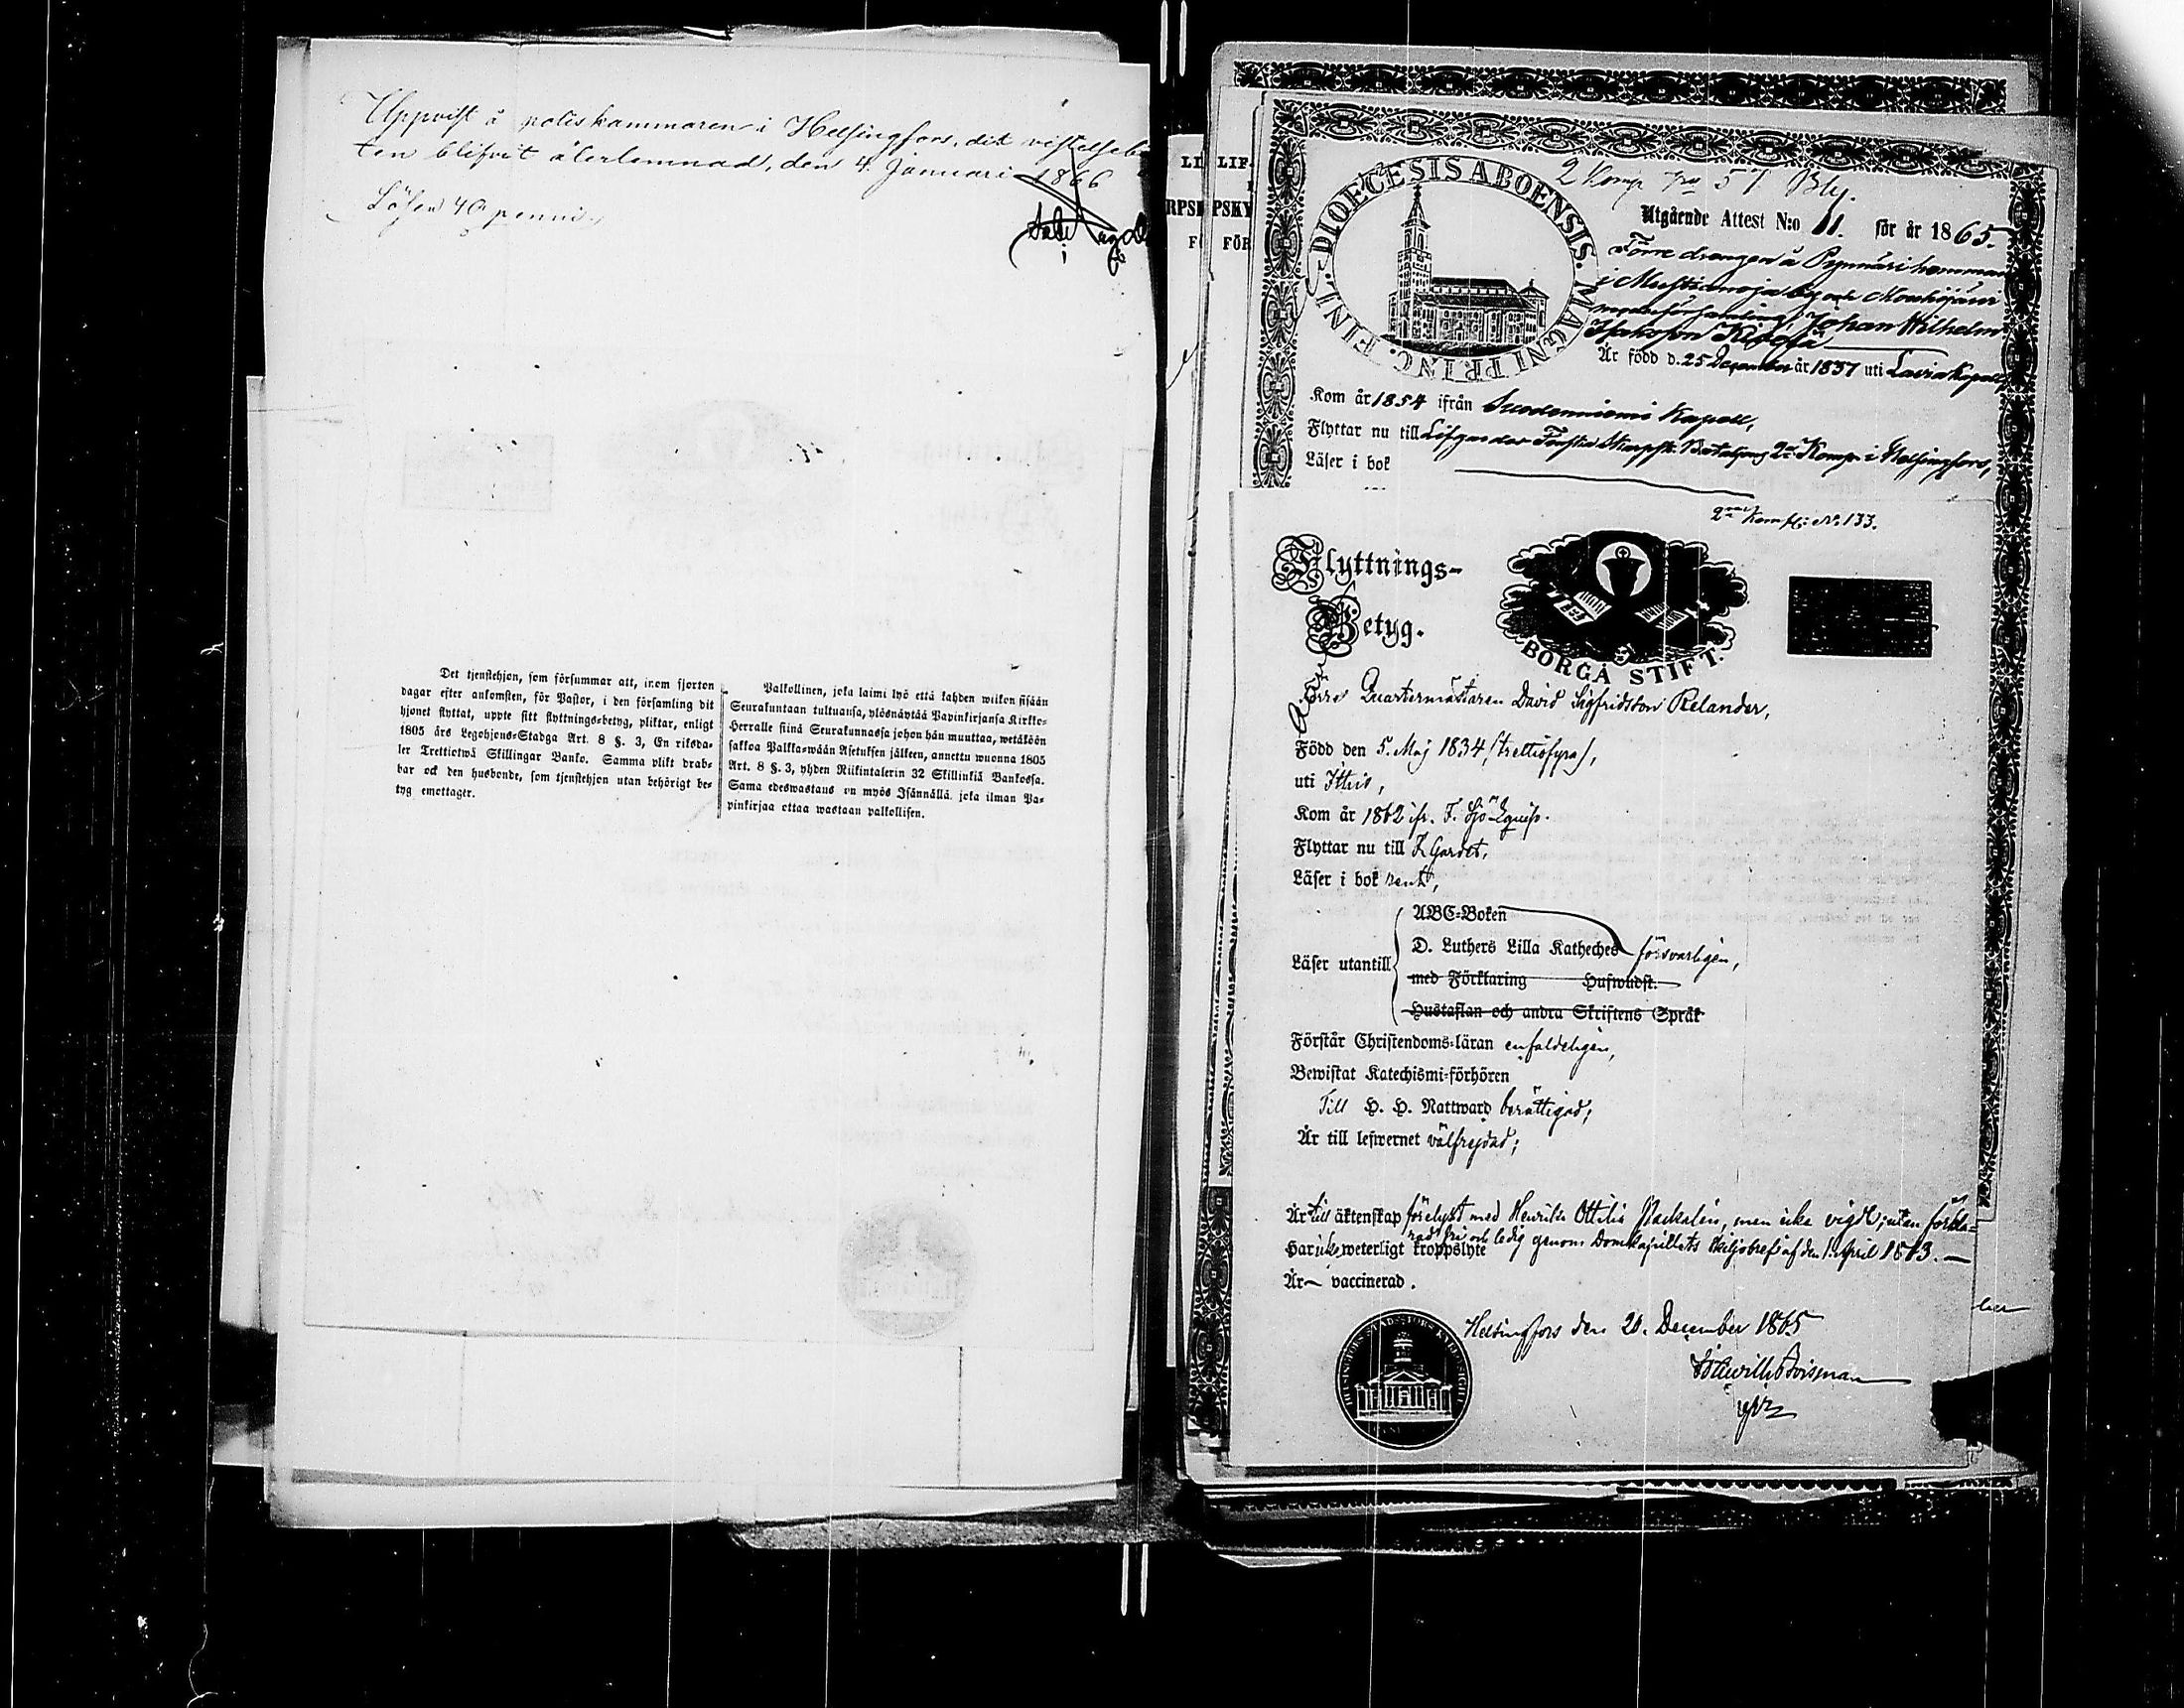 Uppvist å poliskammaren i Helsingfors, dit vistelsebe
ten blifvit återlemnad, den 4 Januari 1866
Lösen 40 penni
Det tjenstehjon, som försummar att, inom fjorton
dagar efter ankomsten, för Pastor, i den församling dit
hjonet flyttat, uppte sitt flyttnings-betyg, pliktar, enligt
1805 års Legohjons-Stadga Art. 8 §. 3, En riksda-
ler Trettiotwå Skillingar Banko. Samma plikt drab-
bar ock den husbonde, som tjenstehjon utan behörigt be-
tyg emottager.
Palkollinen, joka laimi lyö että kahden wiikon sisään
Seurakuntaan tultuansa, ylösnäytää Papinkirjansa Kirkko-
Herralle siinä Seurakunnassa johon hän muuttaa, wetäköön
sakkoa Palkka-wään Asetuksen jälkeen, annettu wuonna 1805
Art. 8 §. 3, yhden Riikintalerin 32 Skillinkiä Bankossa.
Sama edeswastaus on myös Isännällä, joka ilman Pa-
pinkirjaa ottaa wastaan palkollisen.
LI LIF
RPSK PSKY
F FÖR
DIOECESIS ABOENSIS. MAGNI PRINC. FINL.
2 Komp 57
Utgående Attest N:o 11. för år 1865.
Förre drängen å
i by och Mouhijärvi
moderförsamling, Johan Wilhelm
Är född d. 25 December år 1837 uti Lavia Kapell
Kom år 1854 ifrån Suodenniemi Kapell,
Flyttar nu till Lifgardes Finska Skarpsk. Bataljons 2a Komp. i Helsingfors,
Läser i bok
2 Komp: N:133.
Flyttnings-
Betyg.
BORGÅ STIFT.
Förre Quartermästaren David Sigfridsson Relander,
Född den 5. Maj 1834 (trettiofyra),
uti Ithis,
Kom år 1862 ifr. F. Sjö Equip.
Flyttar nu till F. Gardet,
Läser i bok rent,
Läser utantill
ABC-Boken
D. Luthers Lilla Katheches försvarligen,
med Förklaring Hufwudst.
Hustaflan och andra Skriftens Språk
Förstår Christendoms-läran enfaldeligen,
Bewistat Katechismi-förhören
Till H. H. Nattward berättigad;
Är till lefwernet välfrejdad;
Är till äktenskap förelyst med Henrika Ottilia men icke vigd; utan förkla-
rad fri och ledig genom Domkapitlets skiljobref af den 1 April 1863.
Har icke weterligt kroppslyte
Är vaccinerad.
Helsingfors den 20. December 1865